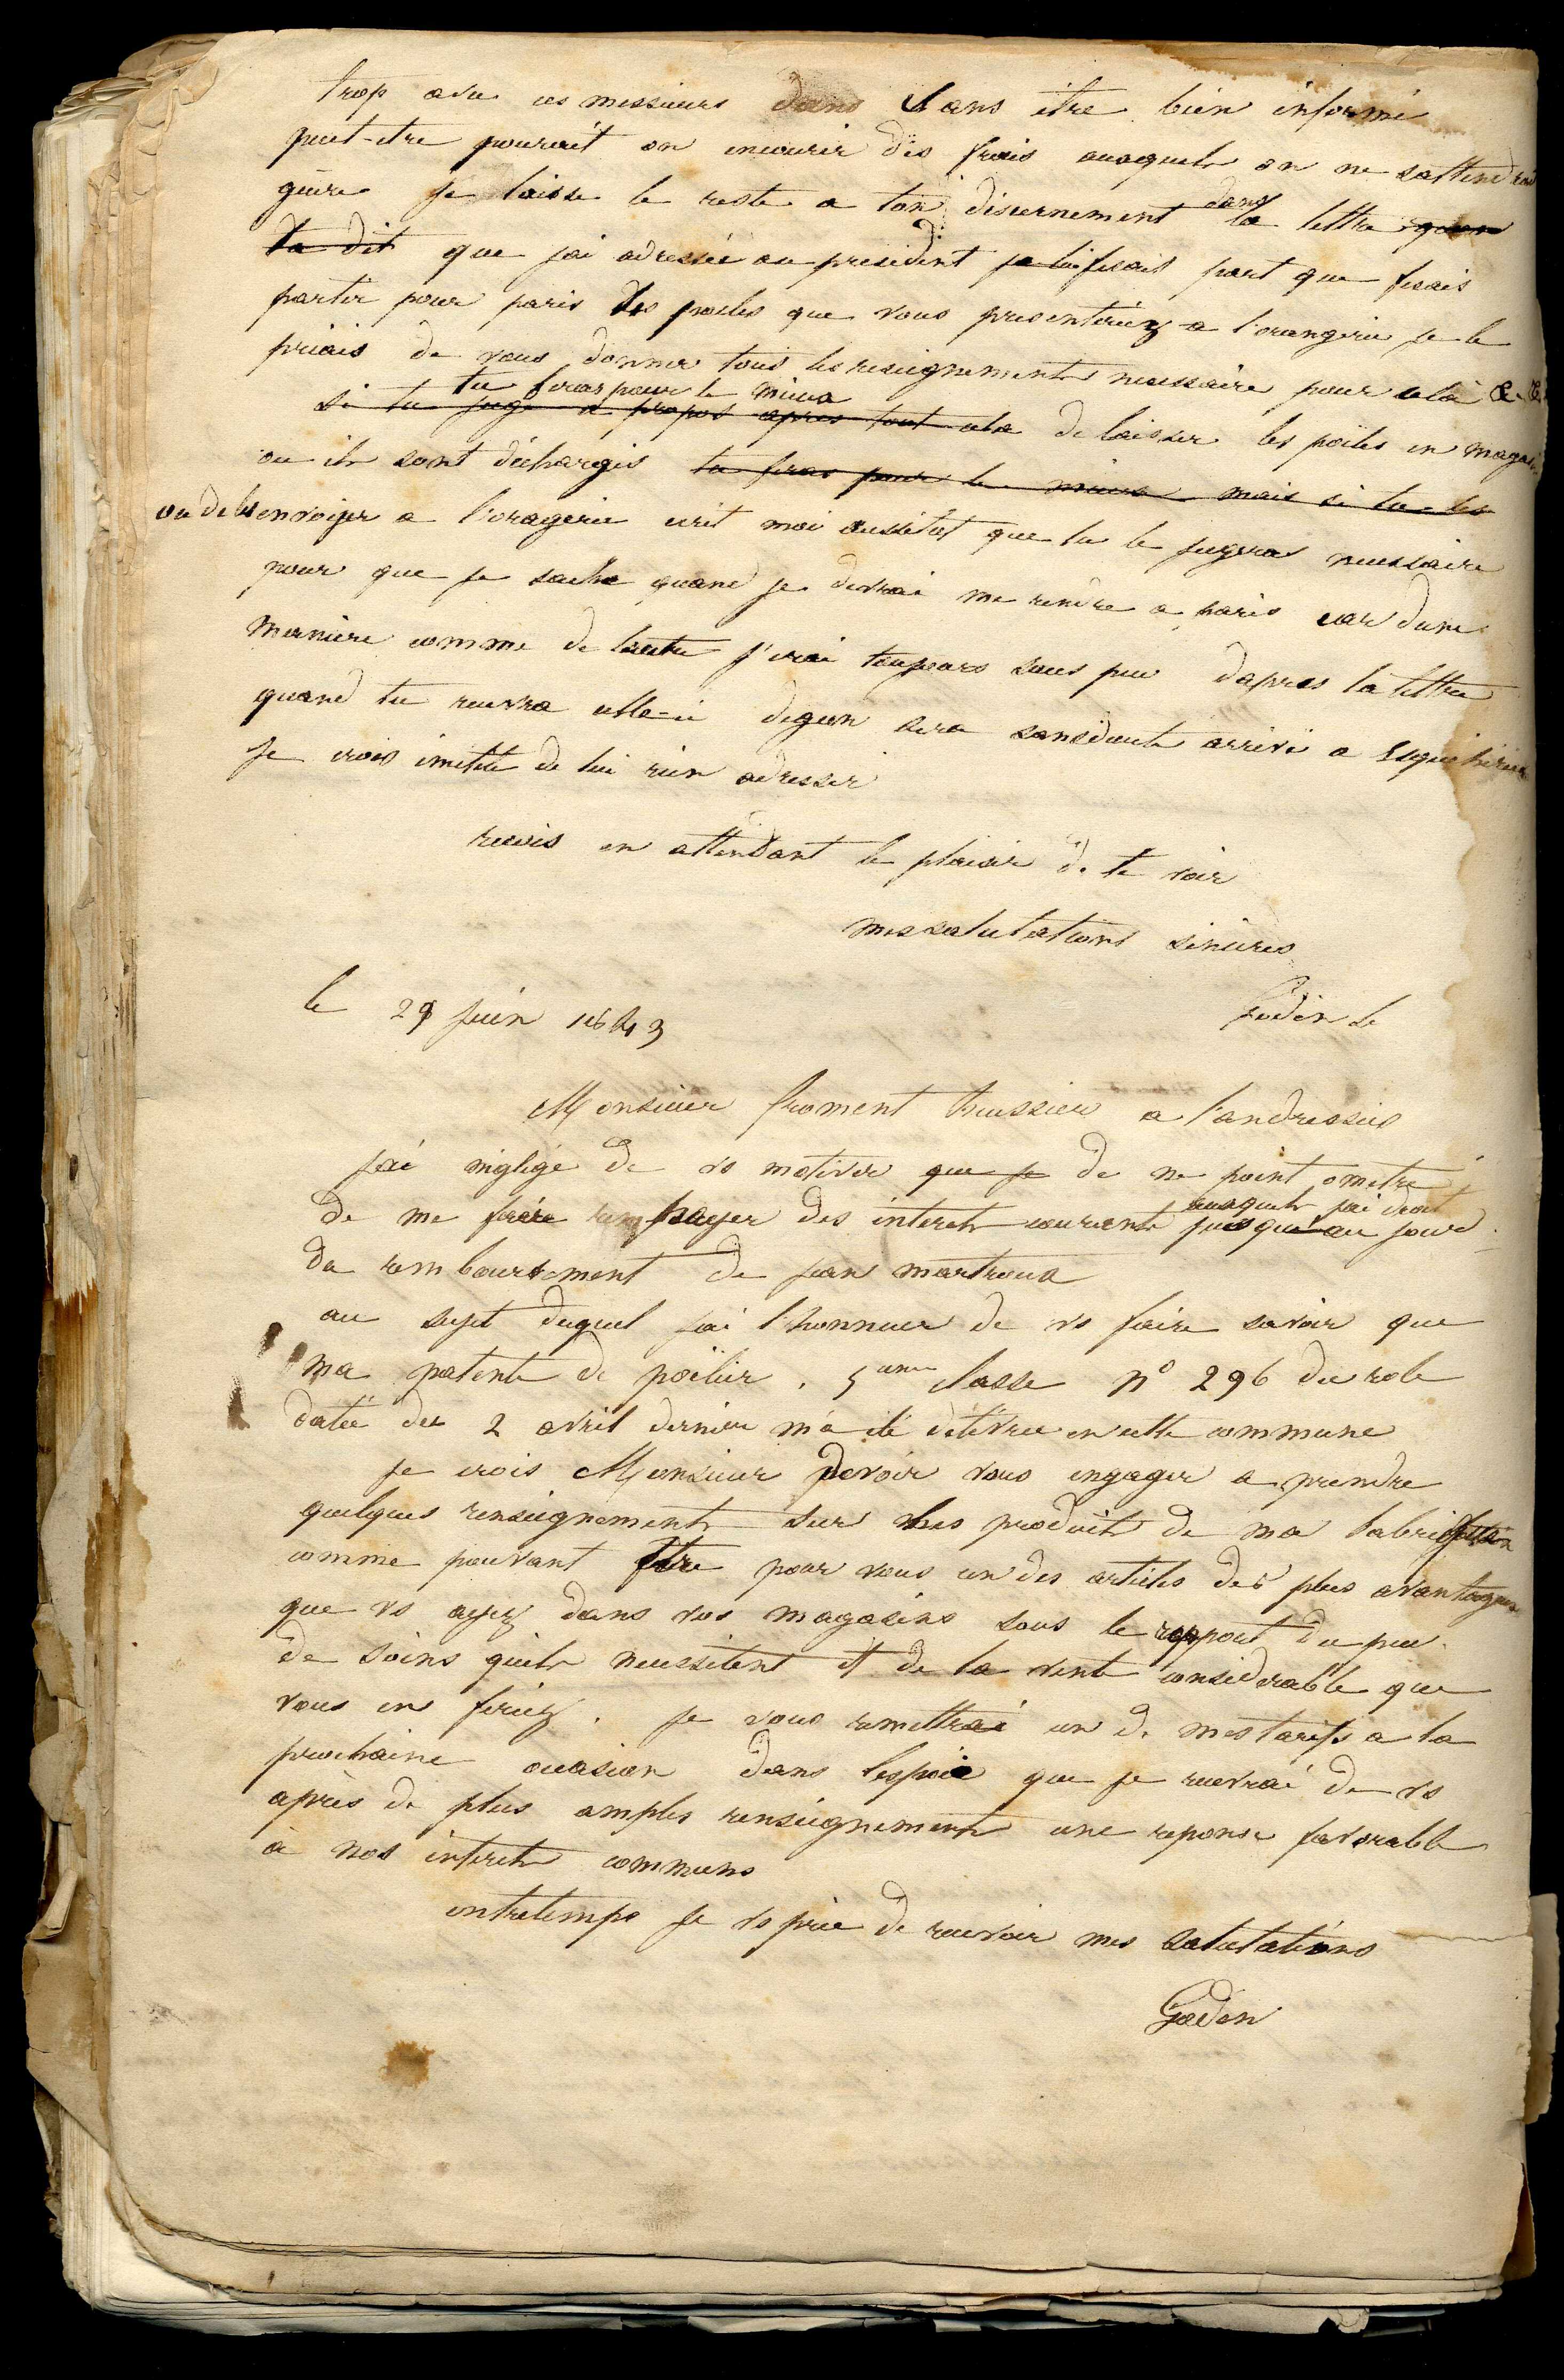 trop avec ces messieurs dans sans être bien informé
peut-etre pourait on encourir des frais auxquels on ne sattendrai
guère je laisse le reste a ton discernement dans la lettre
ta dit que jai adressée au president je lui fesait part que fesais
partir pour paris des poeles que vous presenteriez a l'orangerie je le
priais de vous donner tous les renseignements necessaire pour cela &. &
tu feras pour le mieux
si tu juge a propos apres tout cela de laisser les poëles en magasin
ou ils sont déchargés tu feras pour le mieux mais si tu les
ou de les envoyer a l'oragerie ecrit moi aussitot que tu le jugeras necessaire
pour que je sache quand je devrai me rendre a paris car dune
maniere comme de lautre j'irai toujours sous peu dapres la lettre
quand tu recevra celle-ci degon sera sansdoute arrivé a Esquehéries
je crois inutile de lui rien adresser
recois en attendant le plaisir de te voir
mes salutations sinceres
Godin le
le 29 juin 1843
Monsieur froment huissier a landrecies
jai négligé de vs motiver que je de ne point ometre
de me faire payer des interets courants auxquels jai droit jusqu'au jour
du remboursement de jean martroux
au sujet duquel jai l'honneur de vs faire savoir que
ma patente de poëlier . 5eme classe no 296 du role
datée du 2 avril dernier m'a été délivrée en cette commune
je crois Monsieur devoir vous engager a prendre
quelques renseignements sur les produits de ma fabrication
comme pouvant être pour vous un des articles des plus avantageux
que vs ayez dans vos magasins sous le rapport du peu
de soins quils necessitent et de la vente considerable que
vous en feriez . je vous remettrai un de mes tarifs a la
prochaine occasion dans lespoir que je recevrai de vs
après de plus amples renseignements une reponse favorable
à nos interets communs
entretemps je vs prie de recevoir mes salutations
Godin